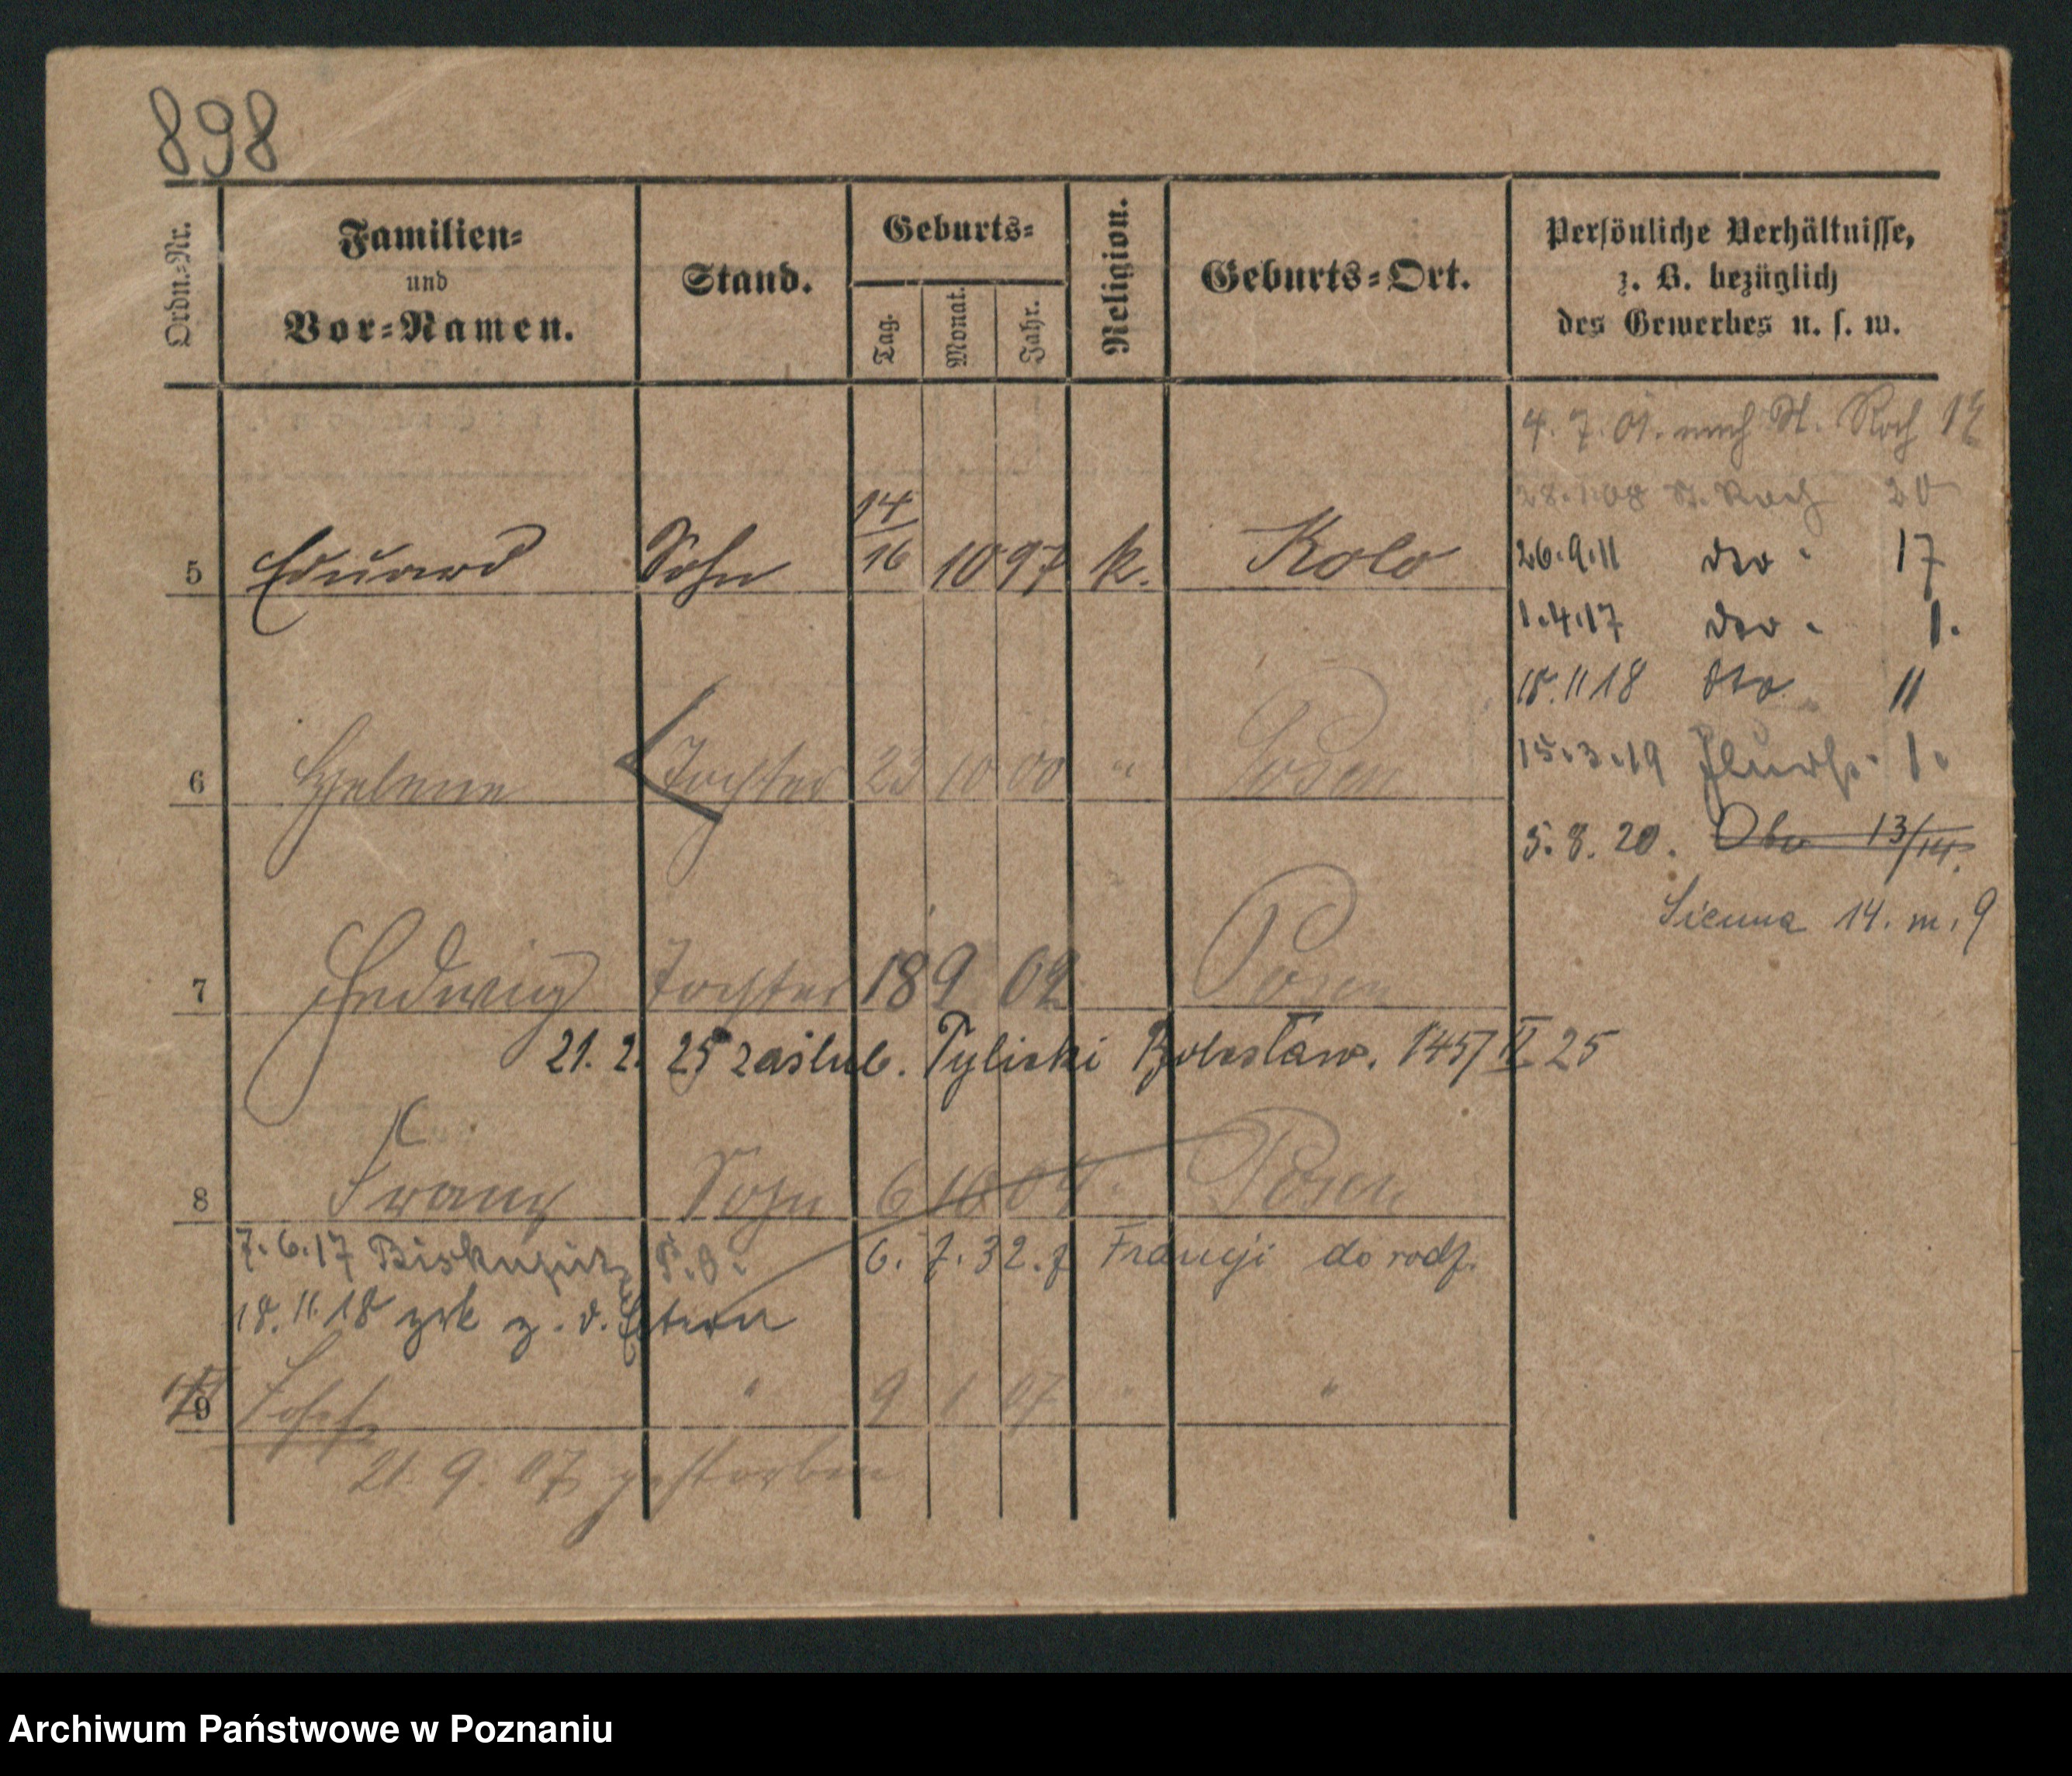 898
Ordn.-Nr.
Familien-
und
Vor-Namen.
Stand.
Geburts-
Tag.
Monat.
Jahr.
Religion.
Geburts-Ort.
Persönliche Verhältnisse,
z. B. bezüglich
des Gewerbes u. s. w.
4. 7. 01. nach St. Roch
St. Roch 20
5 Eduard Sohn 14/16 10 97 k. Kolo
26.9.11 dto. 17
1.4.17 dto. 1.
18.11 18 dto. 11
6 Helene Tochter 23 10 00 " Posen
15.3.19 Flurstr. 1.
5. 8. 20. Obo 13/14.
Sienna 14. m. 9
7 Hedwig Tochter 18 9 02 Posen
21. 2. 25 zaślub. Tylicki Bolesław. 1457 II 25
8 Franz Sohn 6 10 04 " Posen
7. 6. 17 Biskupitz P.O.
6. 7. 32. z Francji do rodz.
18. 11. 18 zrk z. d. Eltern
9 Josef " 9 1 07 " "
21. 9. 07 gestorben
Archiwum Państwowe w Poznaniu